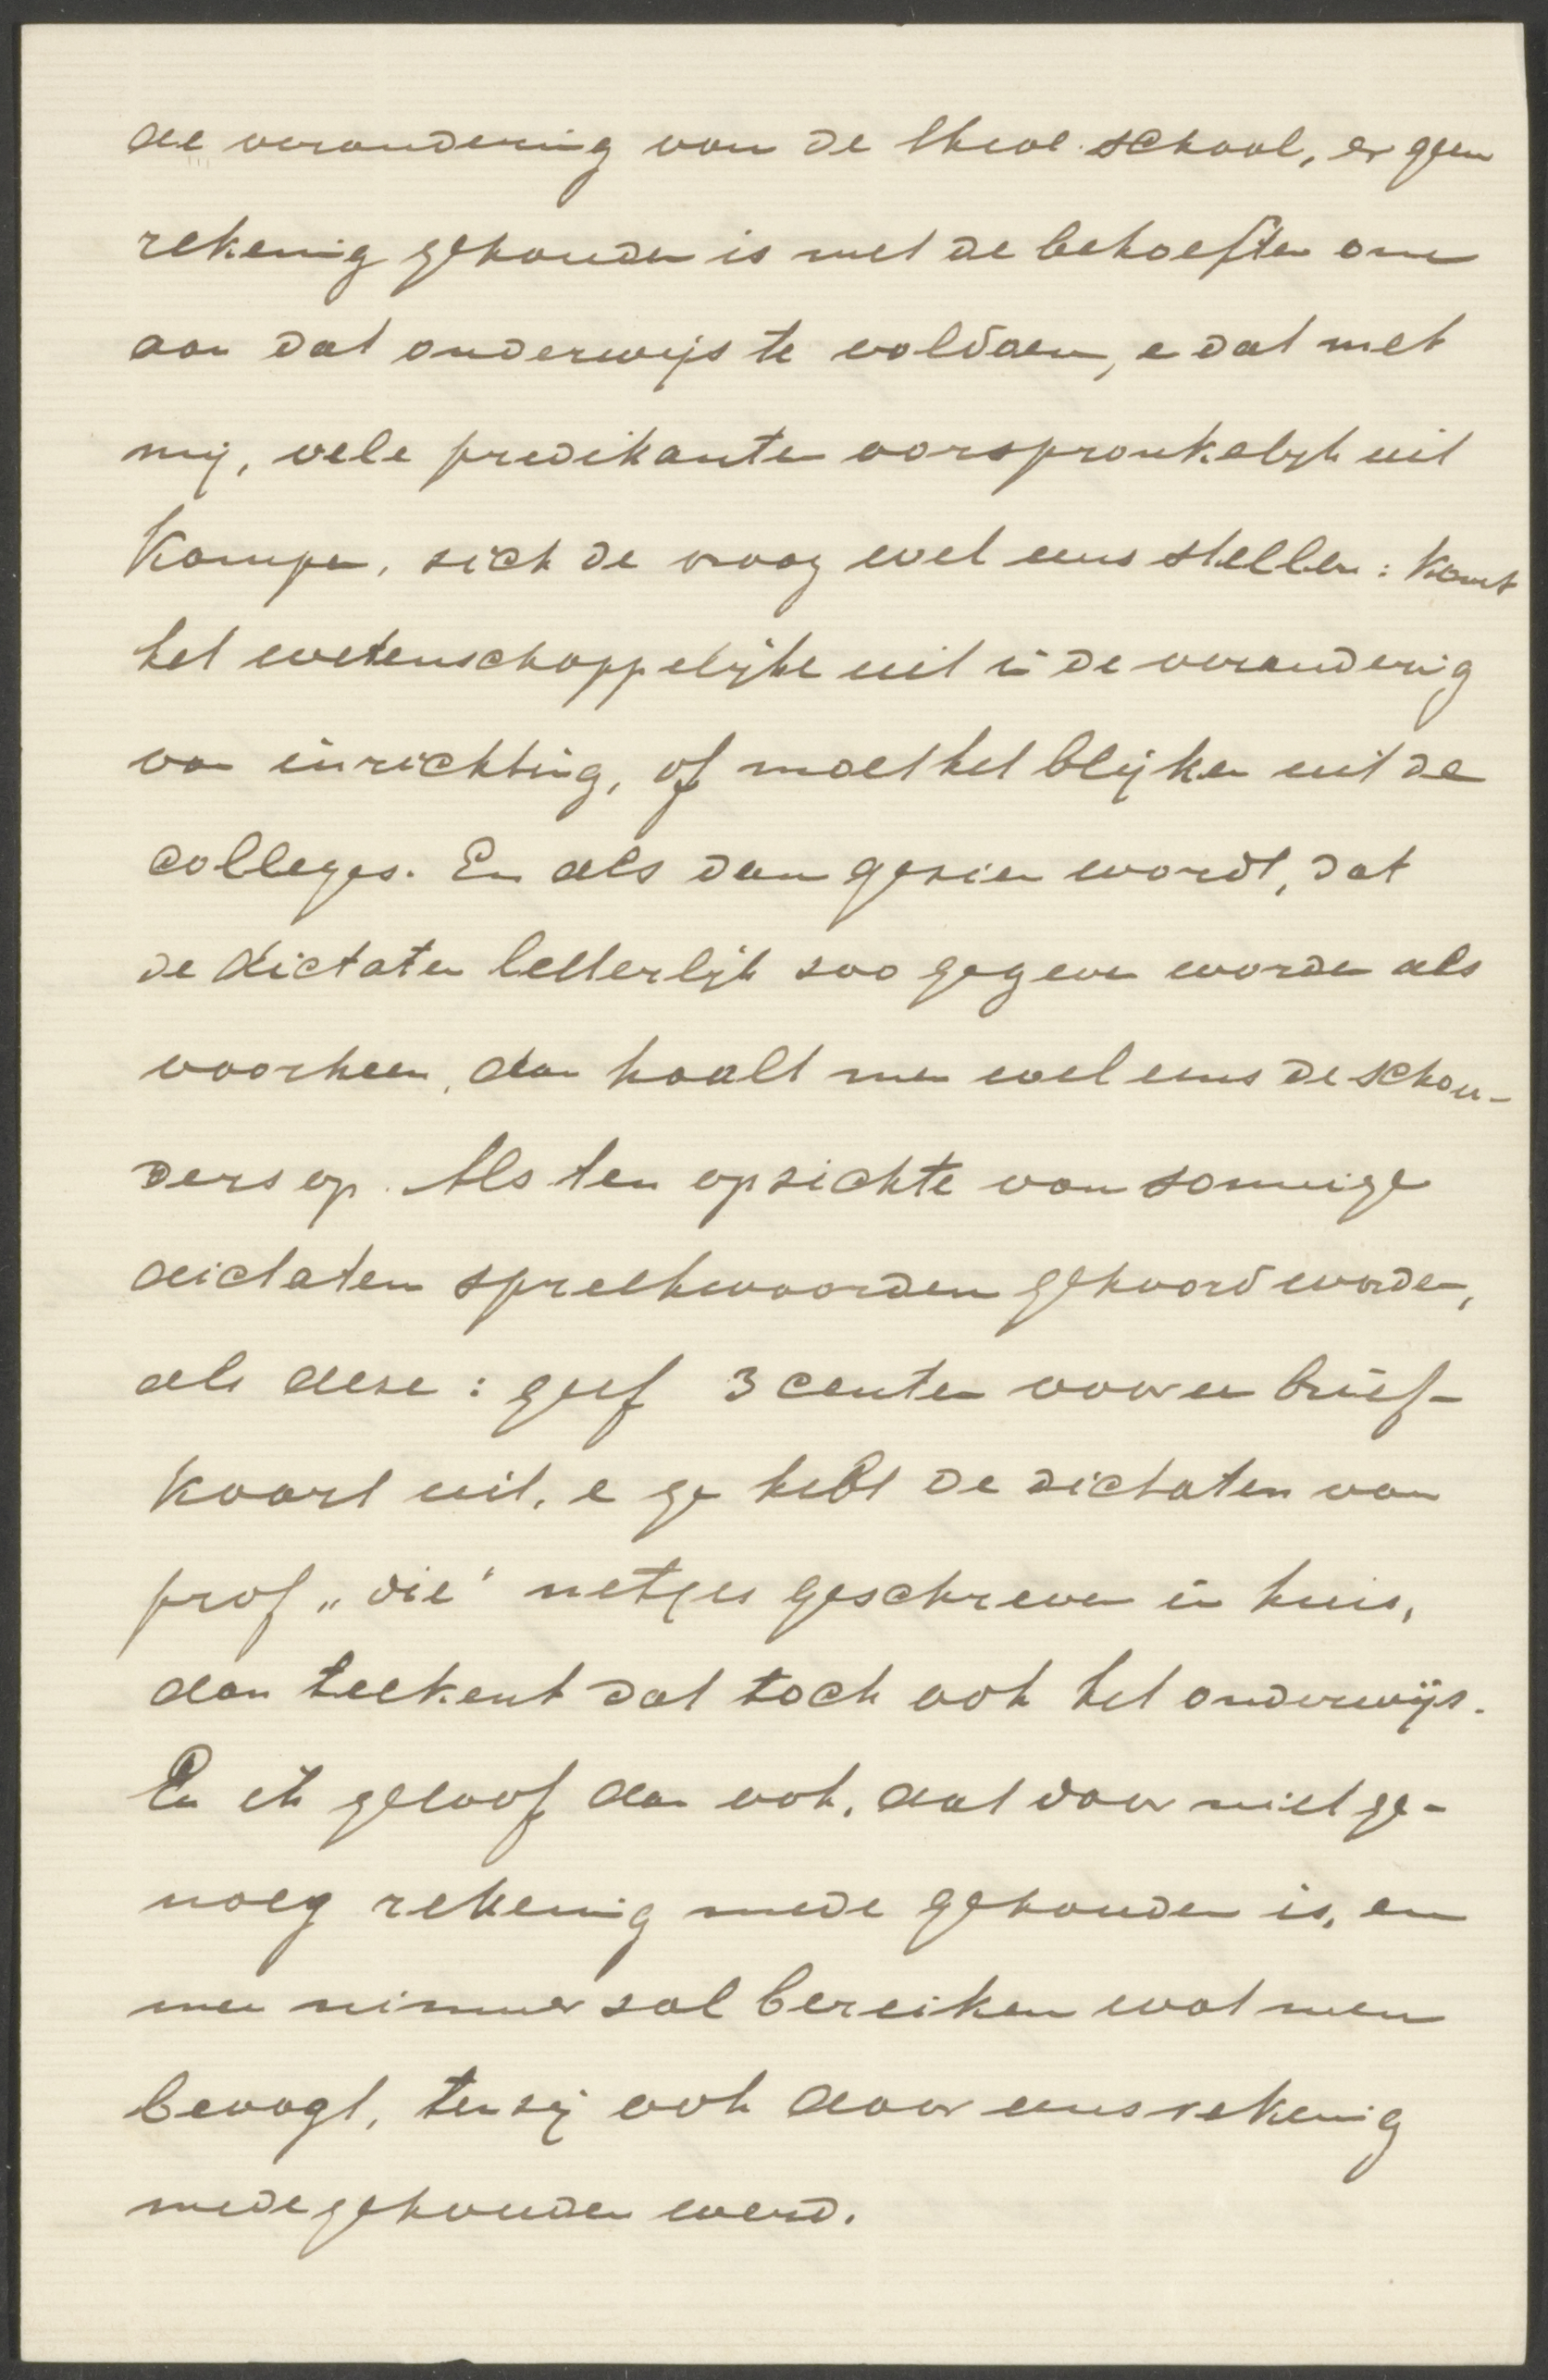 de verandering van de theol. school, er geen
rekening gehouden is met de behoeften om
aan dat onderwijs te voldoen, e dat met
mij, vele predikanten oorspronkelijk uit
Kampen, zich de vraag wel eens stellen: komt
het wetenschappelijke uit in de verandering
van inrichting, of moet het blijken uit de
colleges. En als dan gezien wordt, dat
de dictaten letterlijk zoo gegeven worden als
voorheen, dan haalt men wel eens de schou-
ders op. Als ten opzichte van sommige
dictaten spreekwoorden gehoord worden,
als deze: geef 3 centen voor een brief-
kaart uit, e ge hebt de dictaten van
prof „die' netjes geschreven in huis,
dan teekent dat toch ook het onderwijs.
En ik geloof dan ook, dat daar niet ge-
noeg rekening mede gehouden is, en
men nimmer zal bereiken wat men
beoogt, tenzij ook daar eens rekening
mede gehouden werd.